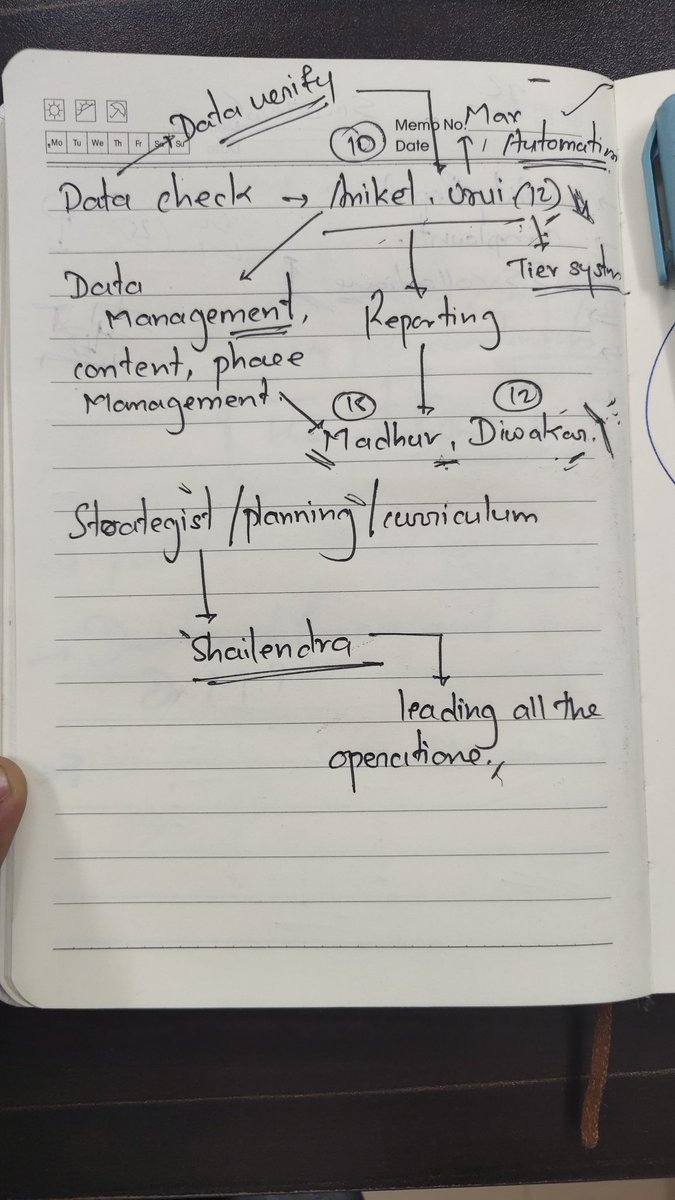 Data verify
Mo Tu We Th Fr Sa Su
Memo No. Mar
10 Date Automation
Data check → Aniket, Urvi (12)
Tier system
Data
Management, Reporting
content, phase
Management
18 12
Madhur, Diwakar.
Strategist/planning/curriculum
Shailendra
leading all the
operations.